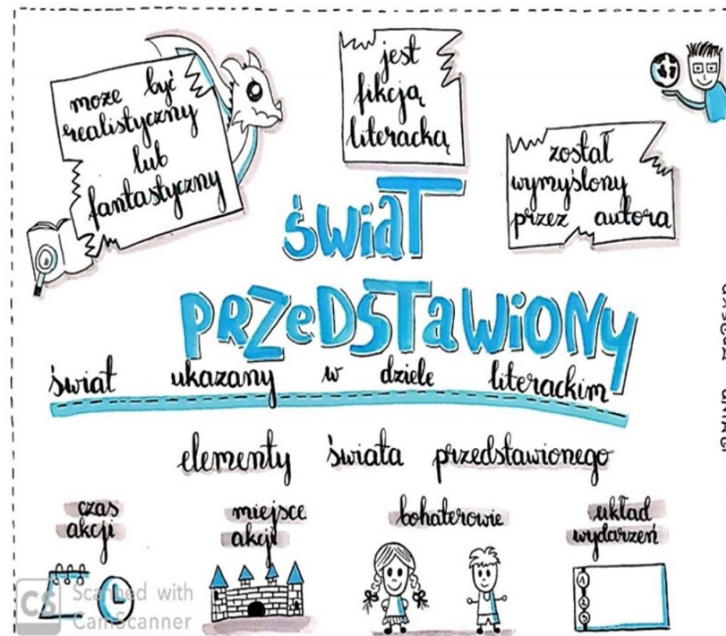 może być
realistyczny
lub
fantastyczny
jest
fikcją
literacką
został
wymyślony
przez autora
świat
PRZEDSTAWIONY
świat ukazany w dziele literackim
elementy świata przedstawionego
czas
akcji
miejsce
akcji
bohaterowie
układ
wydarzeń
1
2
3
CS Scanned with
CamScanner